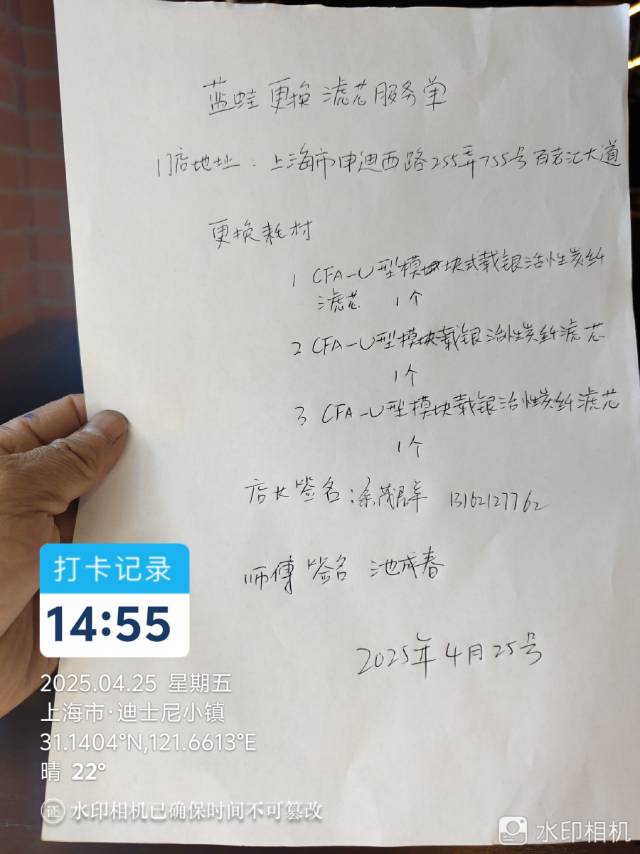 蓝蛙更换滤芯服务单
门店地址：上海市申迪西路255弄755号百老汇大道
更换耗材
1 CFA-U型模块式载银活性炭纤
滤芯 1个
2 CFA-U型模块载银活性炭纤滤芯
1个
3 CFA-U型模块载银活性炭纤滤芯
1个
店长签名：余茂 13162127762
师傅签名 池成春
2025年4月25号
打卡记录
14:55
2025.04.25 星期五
上海市·迪士尼小镇
31.1404°N,121.6613°E
晴 22°
证 水印相机已确保时间不可篡改
水印相机